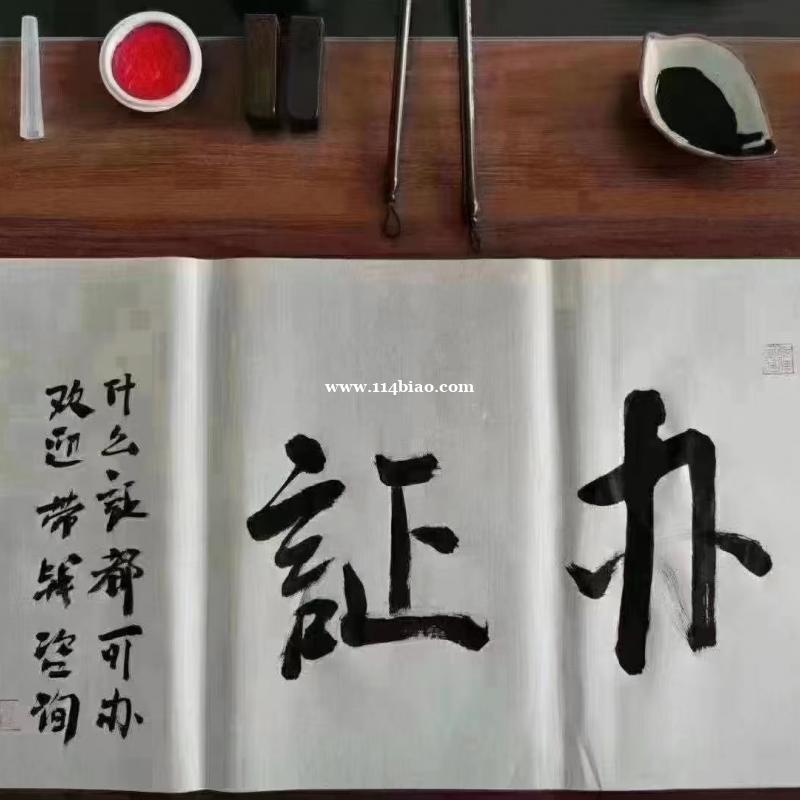 办証
什么証都可办
欢迎带钱咨询
www.114biao.com